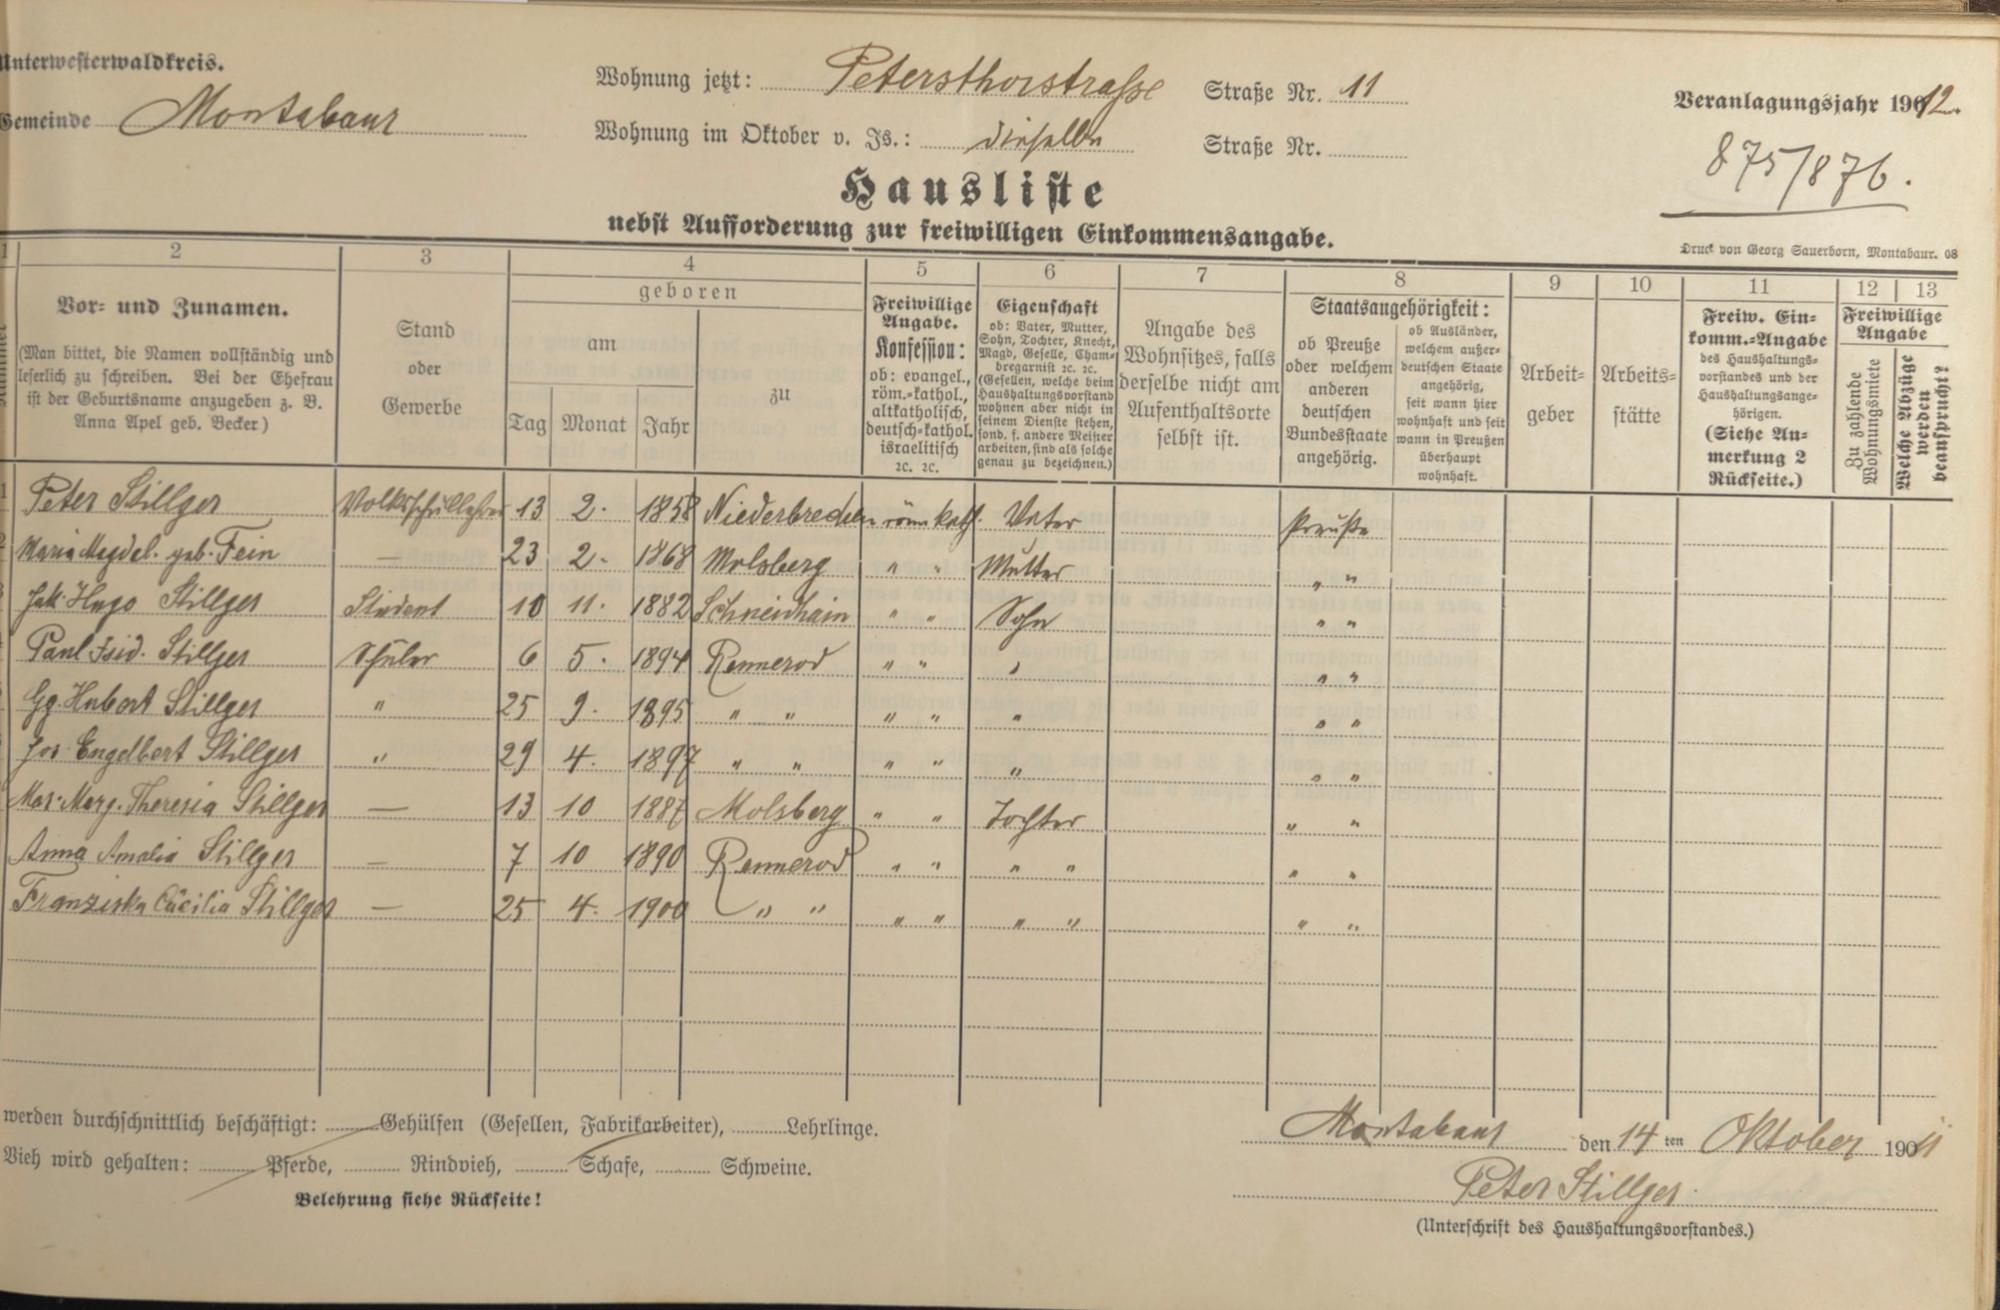 Unterwesterwaldkreis.
Gemeinde Montabaur
Wohnung jetzt: Petersthorstrasse Straße Nr. 11
Wohnung im Oktober v. Js.: dieselbe Straße Nr.
Veranlagungsjahr 19012.
875/876.
Hausliste
nebst Aufforderung zur freiwilligen Einkommensangabe.
Druck von Georg Sauerborn, Montabaur. 08
1 2 3 4 5 6 7 8 9 10 11 12 13
Vor- und Zunamen.
(Man bittet, die Namen vollständig und
leserlich zu schreiben. Bei der Ehefrau
ist der Geburtsname anzugeben z. B.
Anna Apel geb. Becker)
Stand
oder
Gewerbe
geboren
am
Tag Monat Jahr
zu
Freiwillige
Angabe.
Konfession:
ob: evangel.,
röm.-kathol.,
altkatholisch,
deutsch-kathol.
israelitisch
ꝛc. ꝛc.
Eigenschaft
ob: Vater, Mutter,
Sohn, Tochter, Knecht,
Magd, Geselle, Cham-
bregarnist ꝛc. ꝛc.
(Gesellen, welche beim
Haushaltungsvorstand
wohnen aber nicht in
seinem Dienste stehen,
sond. f. andere Meister
arbeiten, sind als solche
genau zu bezeichnen.)
Angabe des
Wohnsitzes, falls
derselbe nicht am
Aufenthaltsorte
selbst ist.
Staatsangehörigkeit:
ob Preuße
oder welchem
anderen
deutschen
Bundesstaate
angehörig.
ob Ausländer,
welchem außer-
deutschen Staate
angehörig,
seit wann hier
wohnhaft und seit
wann in Preußen
überhaupt
wohnhaft.
Arbeit-
geber
Arbeits-
stätte
Freiw. Ein-
komm.-Angabe
des Haushaltungs-
vorstandes und der
Haushaltungsange-
hörigen.
(Siehe An-
merkung 2
Rückseite.)
Freiwillige
Angabe
Zu zahlende
Wohnungsmiete
Welche Abzüge
werden
beansprucht?
1 Peter Stillger Volksschullehrer 13 2. 1858 Niederbrechen röm kath. Vater Preuße
2 Maria Magdal. geb. Fein — 23 2. 1868 Molsberg " " Mutter " "
Jak. Hugo Stillger Student 10 11. 1882 Schneidhain " " Sohn " "
Paul Isid. Stillger Schüler 6 5. 1894 Rennerod " " " " "
Gg. Hubert Stillger " 25 9. 1895 " " " " " " "
Jos. Engelbert Stillger " 29 4. 1897 " " " " " " "
Mar. Marg. Theresia Stillger — 13 10 1887 Molsberg " " Tochter " "
Anna Amalia Stillger — 7 10 1890 Rennerod " " " " " "
Franziska Cäcilia Stillger — 25 4. 1900 " " " " " " " "
werden durchschnittlich beschäftigt: Gehülfen (Gesellen, Fabrikarbeiter), Lehrlinge.
Vieh wird gehalten: Pferde, Rindvieh, Schafe, Schweine.
Belehrung siehe Rückseite!
Montabaur den 14 ten Oktober 19011
Peter Stillger.
(Unterschrift des Haushaltungsvorstandes.)